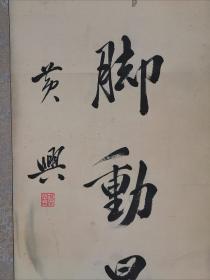 脚動
黄興